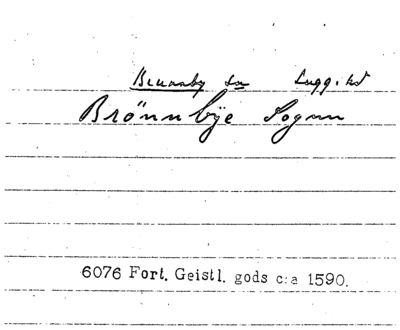 Brunnby sn Luggude hd
Brönnbÿe Sognn
6076 Fort. Geistl. gods c:a 1590.